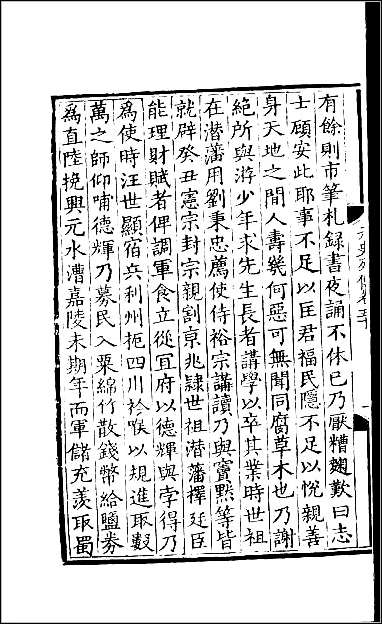 有餘則市筆札録書夜誦不休已乃厭糟麴歎曰志
士顧安此耶事不足以匡君福民隱不足以悅親善
身天地之間人壽幾何惡可無聞同腐草木也乃謝
絶所與游少年求先生長者講學以卒其業時世祖
在潜藩用劉秉忠薦使侍裕宗講讀乃與竇黙等皆
就辟癸丑憲宗封宗親割京兆隷世祖潜藩擇廷臣
能理財賦者俾調軍食立從冝府以德輝與孛得乃
爲使時汪世顯宿兵利州扼四川衿喉以規進取數
萬之師仰哺德輝乃募民入粟綿竹散錢幣給鹽劵
爲直陸挽興元水漕嘉陵未期年而軍儲充羡取蜀